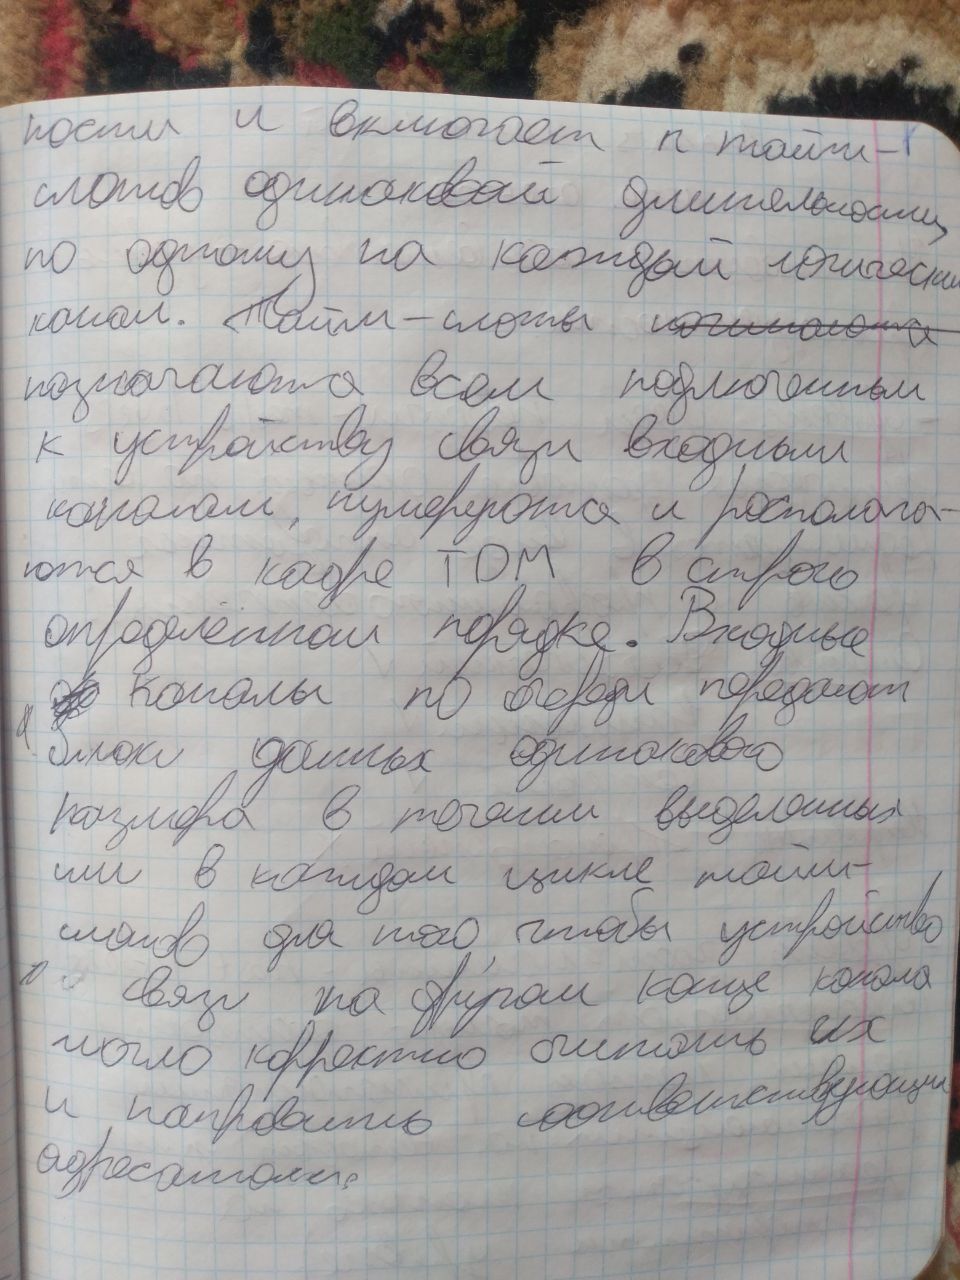 ности и включает n тайм-
слотов одинаковой длительности,
по одному на каждый логический
канал. Тайм-слоты
назначаются всем подключенным
к устройству связи входным
каналам, нумеруются и распологa-
ются в кадре TDM в строго
определённом порядке. Входные
каналы по очереди передают
блоки данных одинакового
размера в течении выделенных
им в каждом цикле тайм-
слотов для того, чтобы устройство
связи на другом конце канала
могло корректно считать их
и направить соответствующим
адресатам.